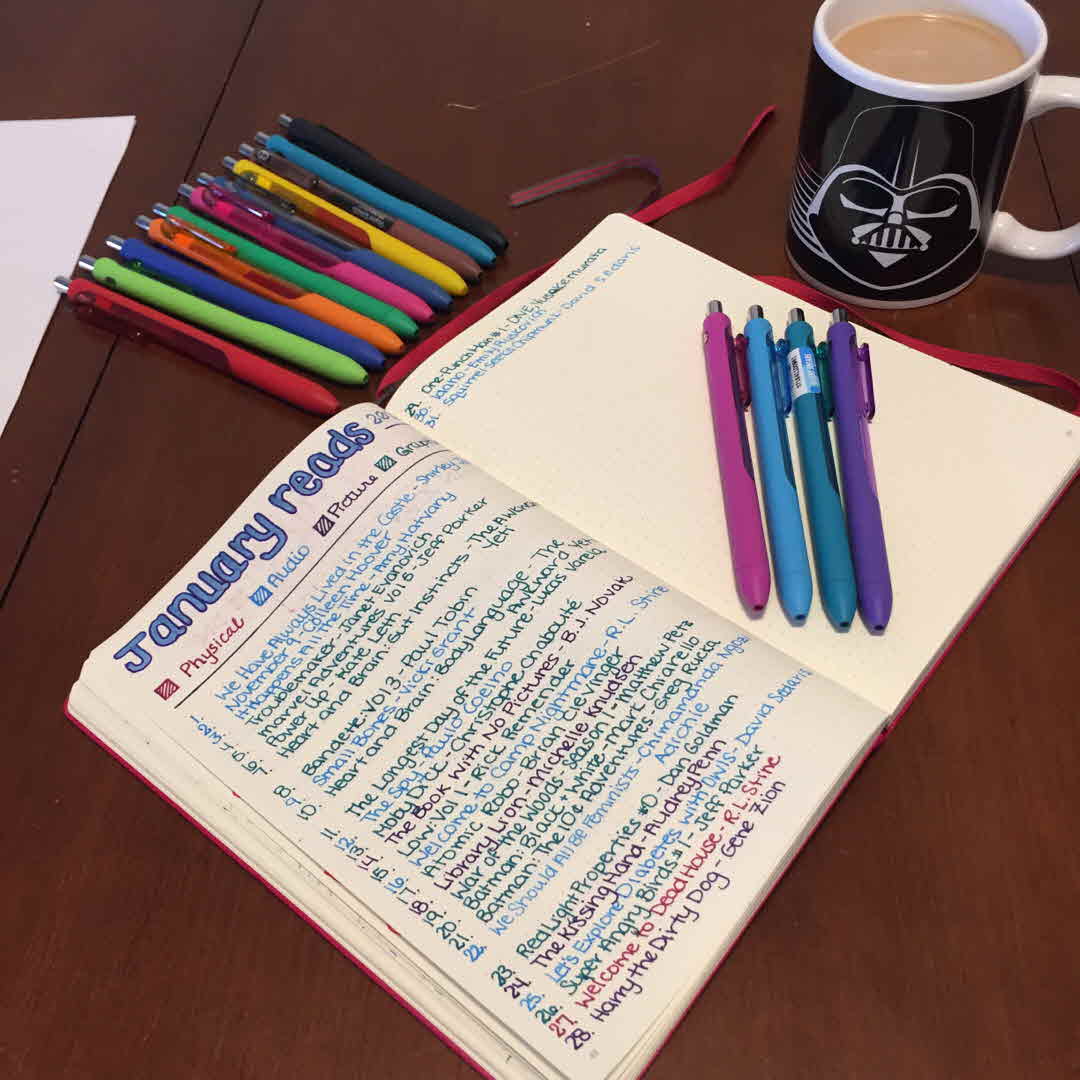 January reads
Physical Audio Picture Graph
1. We Have Always Lived in the Castle - Shirley
2. November 9 - Colleen Hoover
3. Kitchens All the Time - Amy Hatvany
4. Troublemaker - Janet Evanovich
5. Marvel Adventures Vol 5 - Jeff Parker
6. Power Up - Kate Leth
7. Heart and Brain: Gut Instincts - The Awkward
Yeti
8. Bandette Vol 3 - Paul Tobin
9. Small Bones - Vicki Grant
10. Heart and Brain: Body Language - The
Awkward Yeti
11. The Longest Day of the Future - Lucas Varela
12. The Spy - Paulo Coelho
13. Hobby Drive - Christophe Chabouté
14. The Book With No Pictures - B.J. Novak
15. Low Vol 1 - Rick Remender
16. Welcome to Camp Nightmare - R.L. Stine
17. Atomic Robo - Brian Clevinger
18. Library Lion - Michelle Knudsen
19. War of the Woods: Season 1 - Matthew Petz
20. Batman: Black + White - Mark Chiarello
21. Batman: The 10¢ Adventures - Greg Rucka
22. We Should All Be Feminists - Chimamanda Ngozi
Adichie
23. Red Light Properties #0 - Dan Goldman
24. The Kissing Hand - Audrey Penn
25. Let's Explore Diabetes with Owls - David Sedaris
26. Super Angry Birds #1 - Jeff Parker
27. Welcome to Dead House - R.L. Stine
28. Harry the Dirty Dog - Gene Zion
29. One-Punch Man #1 - ONE, Yusuke Murata
30. Idaho - Emily Ruskovich
31. Squirrel Seeks Chipmunk - David Sedaris